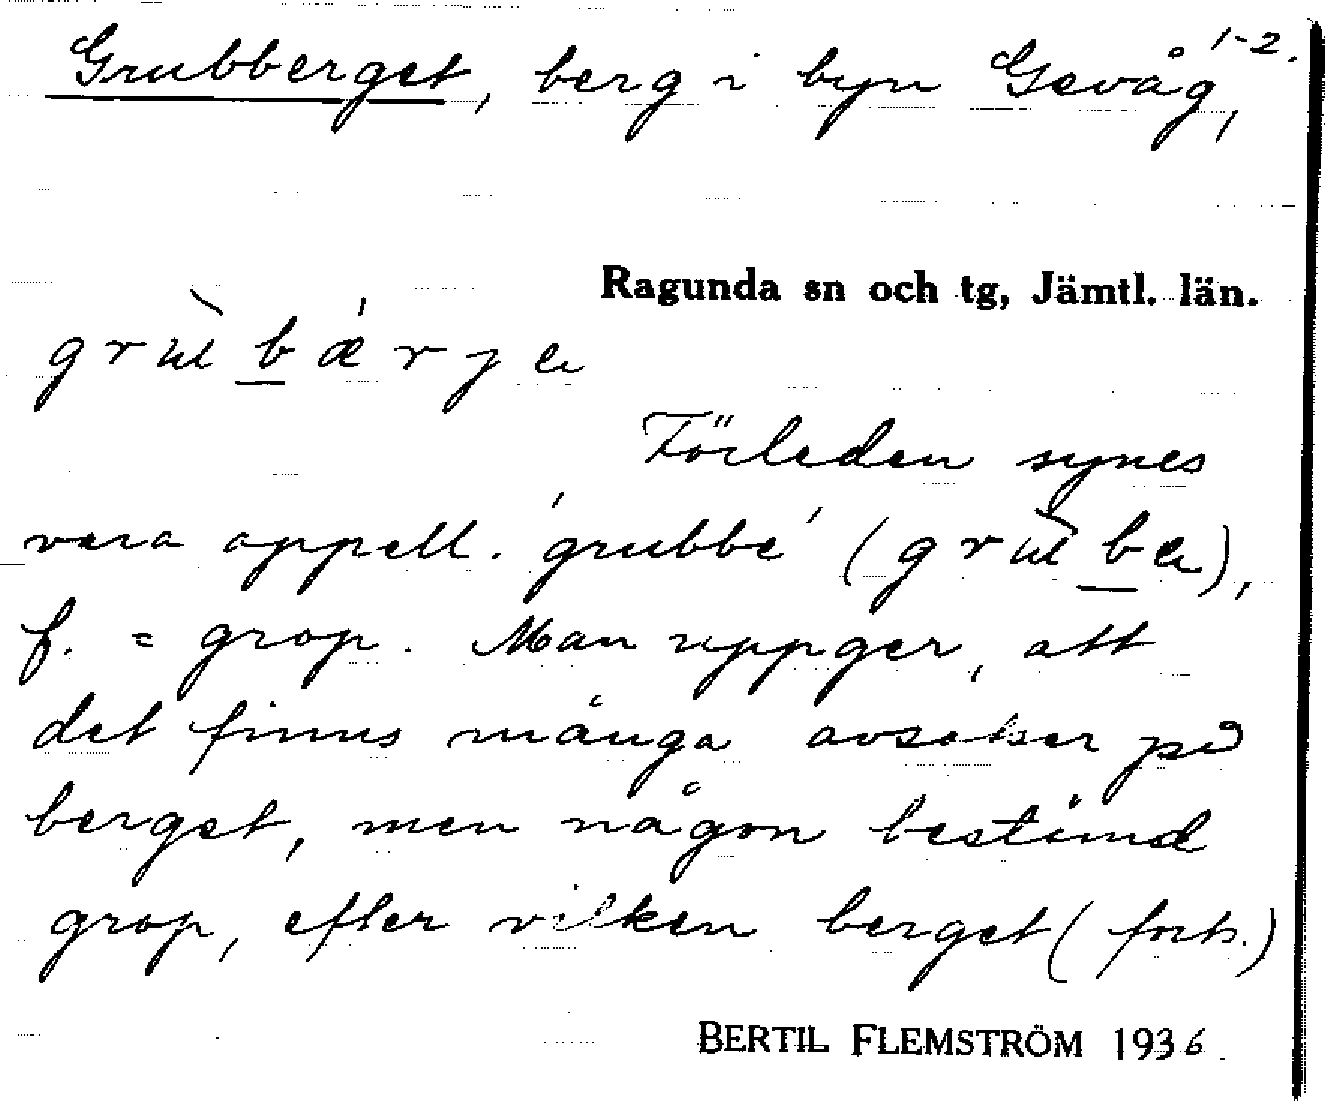 Grubberget, berg i byn Gevåg 1-2.,
Ragunda sn och tg, Jämtl. län.
Förleden synes
vara appell. 'grubba'
f. = grop. Man uppger, att
det finns många avsatser på
berget, men någon bestämd
grop, efter vilken berget (forts.)
BERTIL FLEMSTRÖM 1936